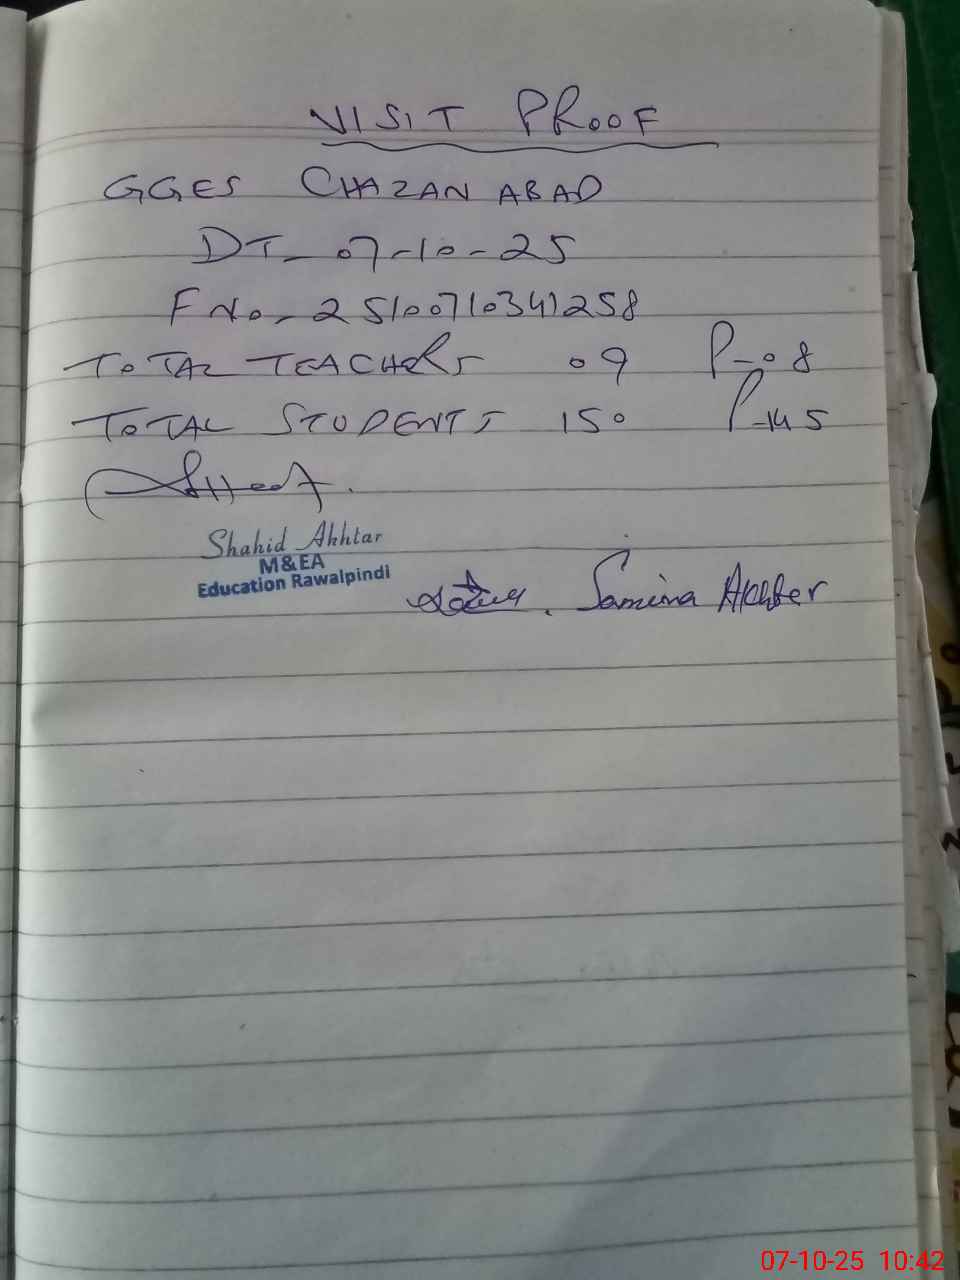 VISIT PROOF
GGES CHAZAN ABAD
DT- 07-10-25
F No- 25100710341258
TOTAL TEACHERS 09 P-08
TOTAL STUDENTS 150 P-145
Shahid Akhtar
M&EA
Education Rawalpindi
Samina Akhter
07-10-25 10:42